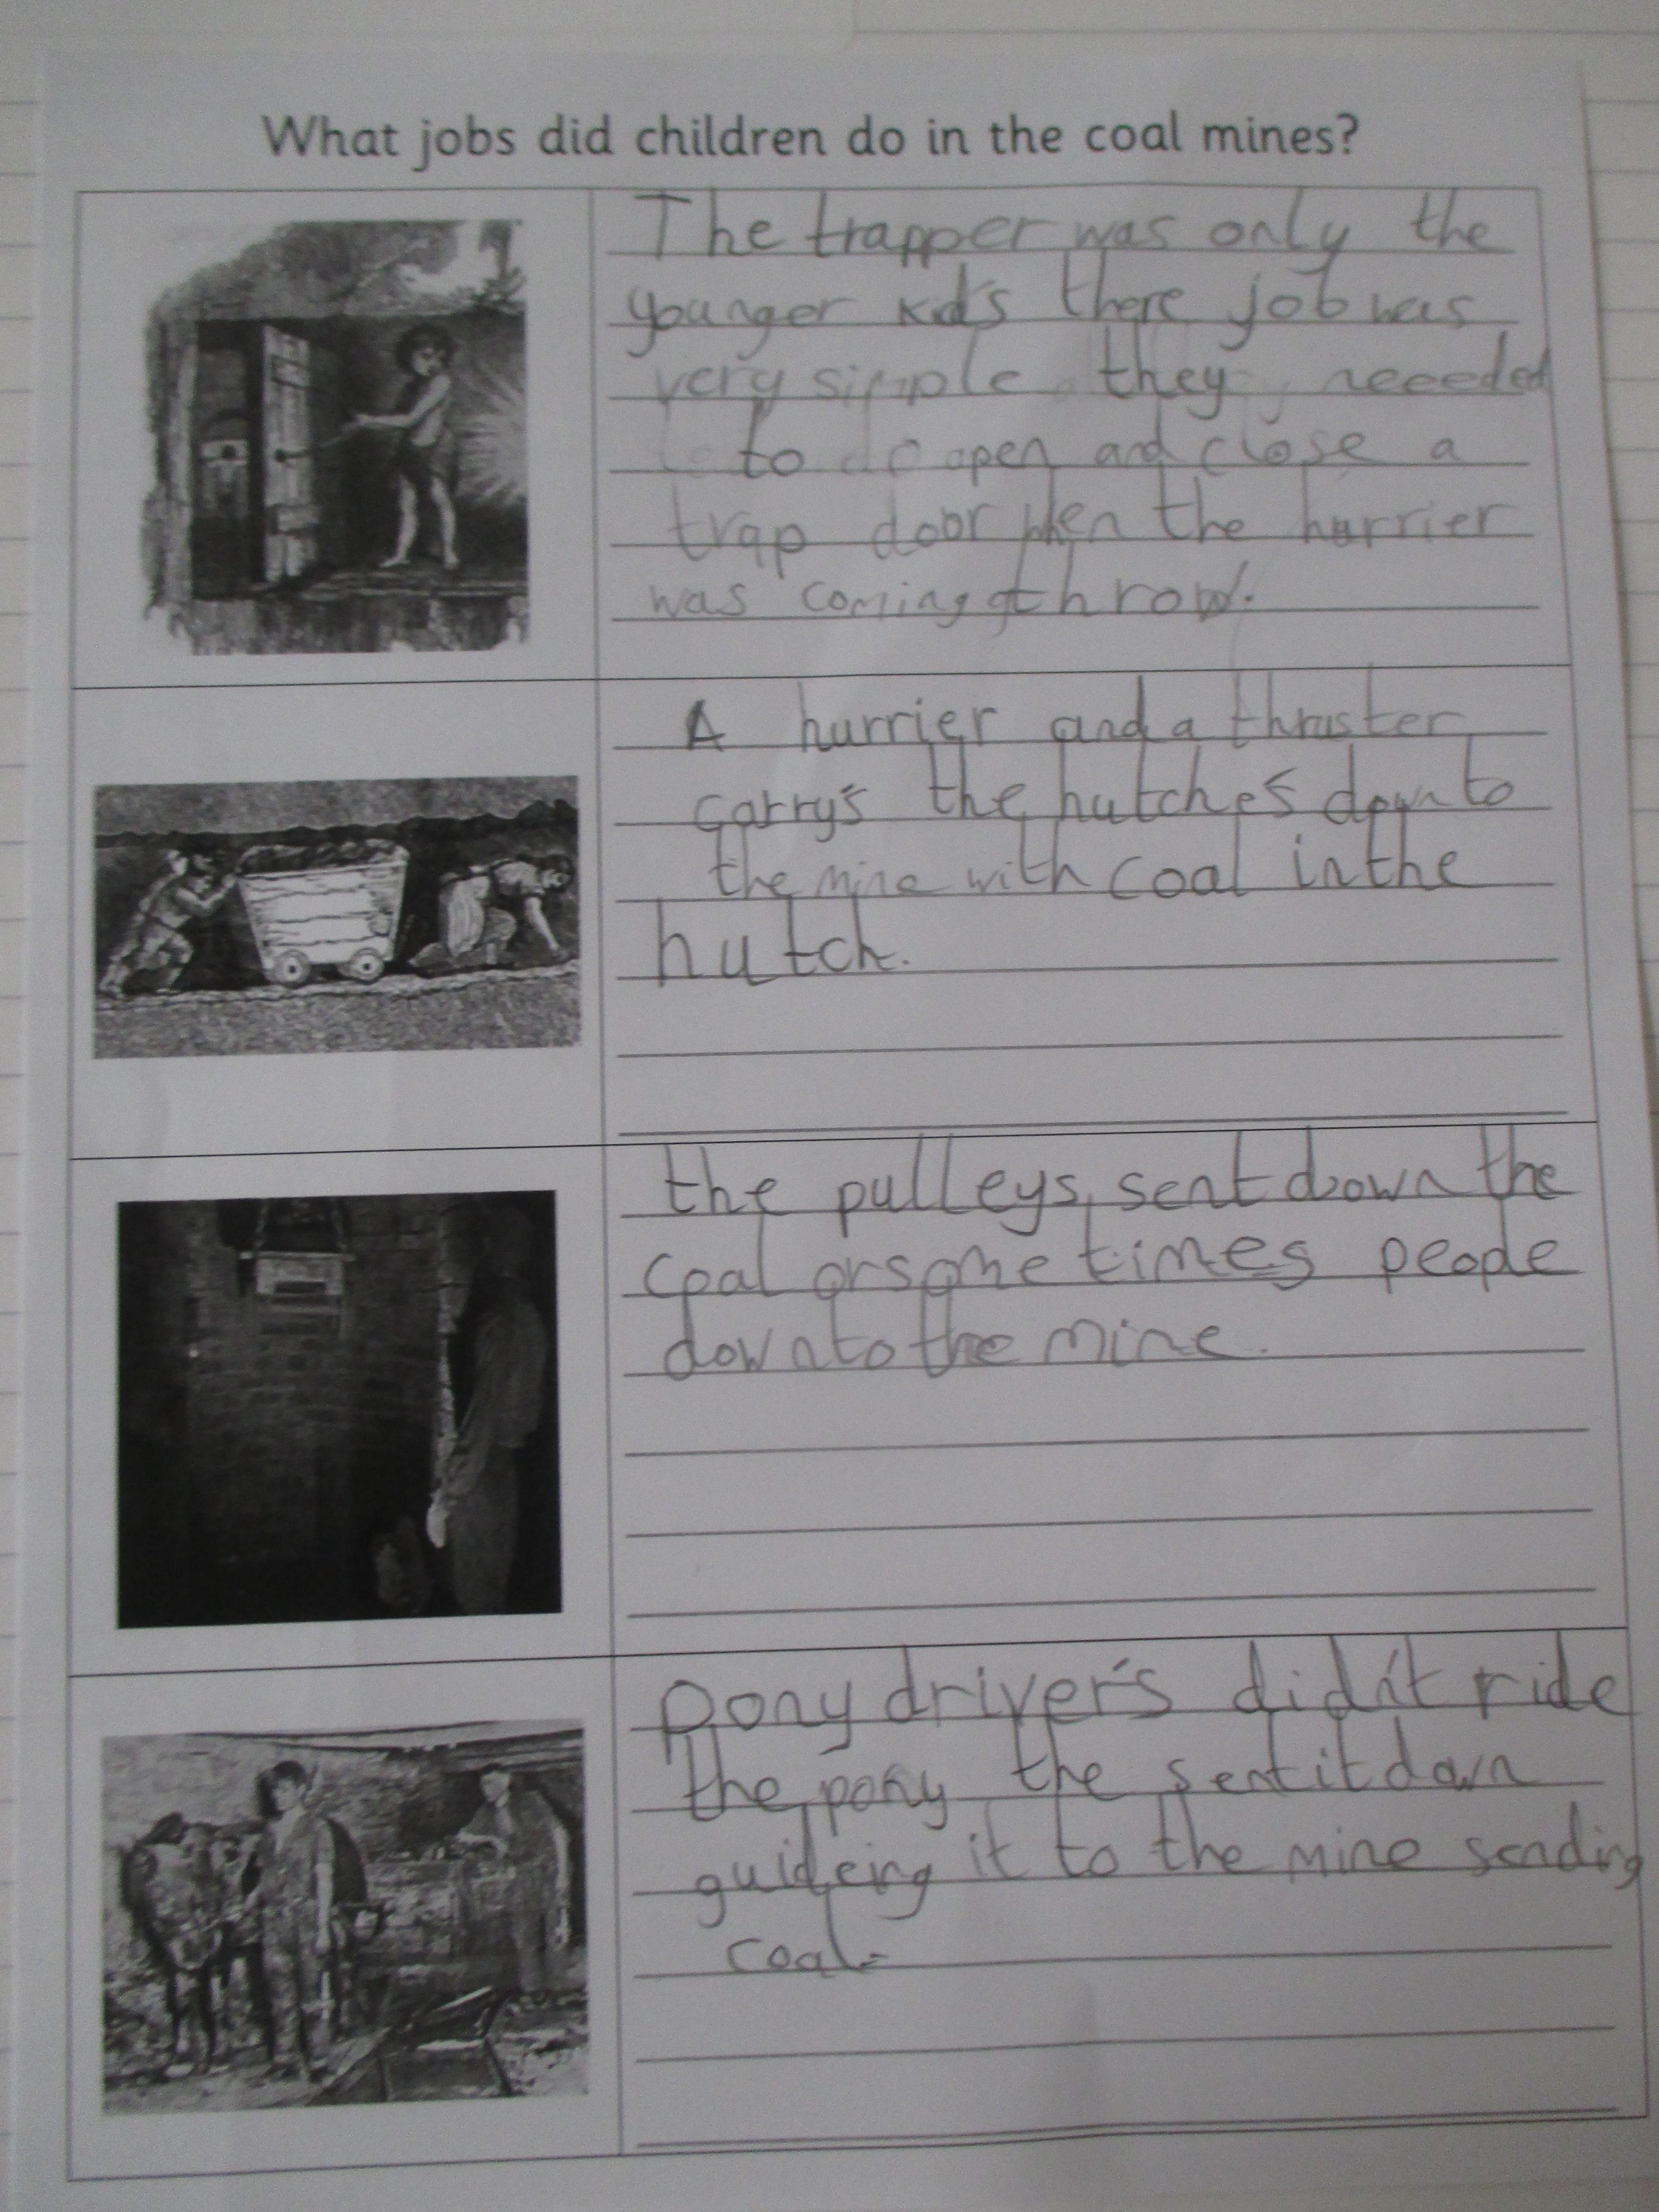 What jobs did children do in the coal mines?
The trapper was only the
younger kid's there job was
very simple they neeeded
to open and close a
trap door when the hurrier
was coming throw.
A hurrier and a thruster
carry's the hutche's down to
the mine with coal in the
hutch.
the pulleys sent down the
coal or some times people
down to the mine.
pony driver's did'nt ride
the pony the sent it down
guideing it to the mine sending
coal.